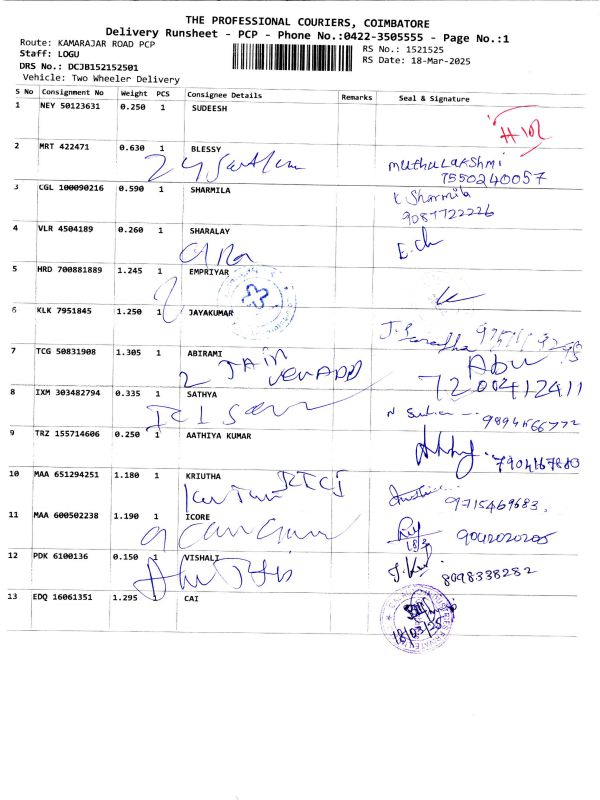 THE PROFESSIONAL COURIERS, COIMBATORE
Delivery Runsheet - PCP - Phone No.:0422-3505555 - Page No.:1
Route: KAMARAJAR ROAD PCP
RS No.: 1521525
Staff: LOGU
RS Date: 18-Mar-2025
DRS No.: DCJB152152501
Vehicle: Two Wheeler Delivery
S No Consignment No Weight PCS Consignee Details Remarks Seal & Signature
1 NEY 50123631 0.250 1 SUDEESH
2 MRT 422471 0.630 1 BLESSY
muthulakshmi
7550240057
3 CGL 100090216 0.590 1 SHARMILA
K. Sharmila
9087722226
4 VLR 4504189 0.260 1 SHARALAY
5 HRD 700881889 1.245 1 EMPRIYAR
6 KLK 7951845 1.250 1 JAYAKUMAR
7 TCG 50831908 1.305 1 ABIRAMI
JAIN
Abu
7200412411
8 IXM 303482794 0.335 1 SATHYA
9894566772
9 TRZ 155714606 0.250 1 AATHIYA KUMAR
7904167883
10 MAA 651294251 1.180 1 KRIUTHA
9715469683
11 MAA 600502238 1.190 1 ICORE
9042020205
12 PDK 6100136 0.150 1 VISHALI
8098338282
13 EDQ 16061351 1.295 1 CAI
18/03/25